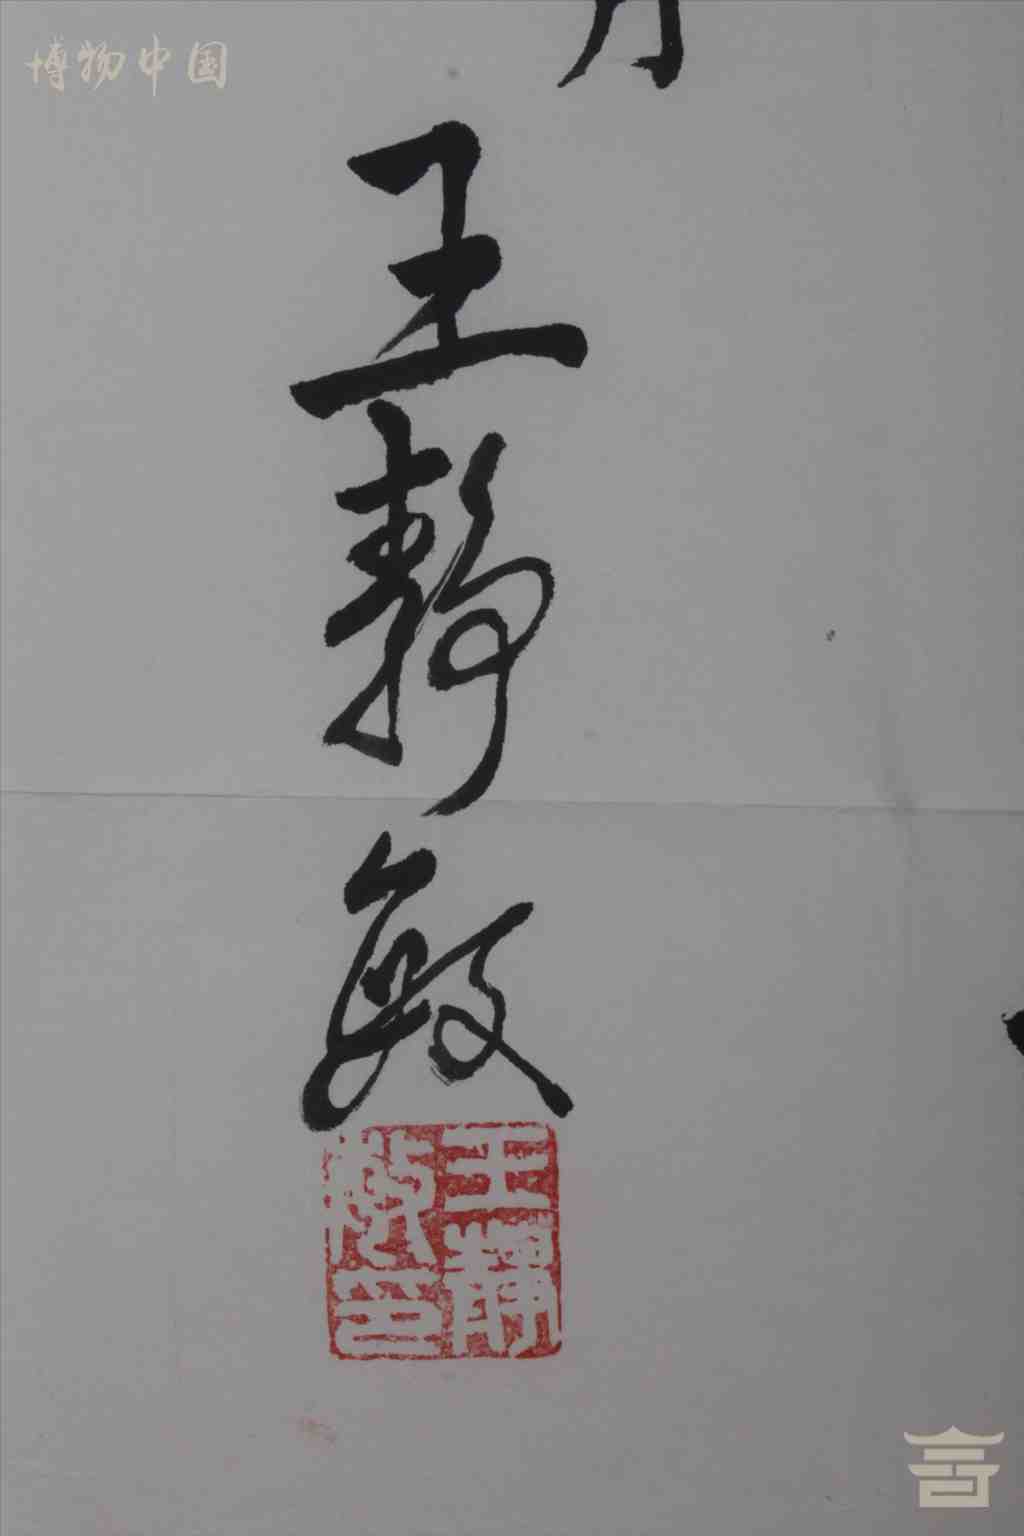 博物中国
月
王静敏
王静敏印